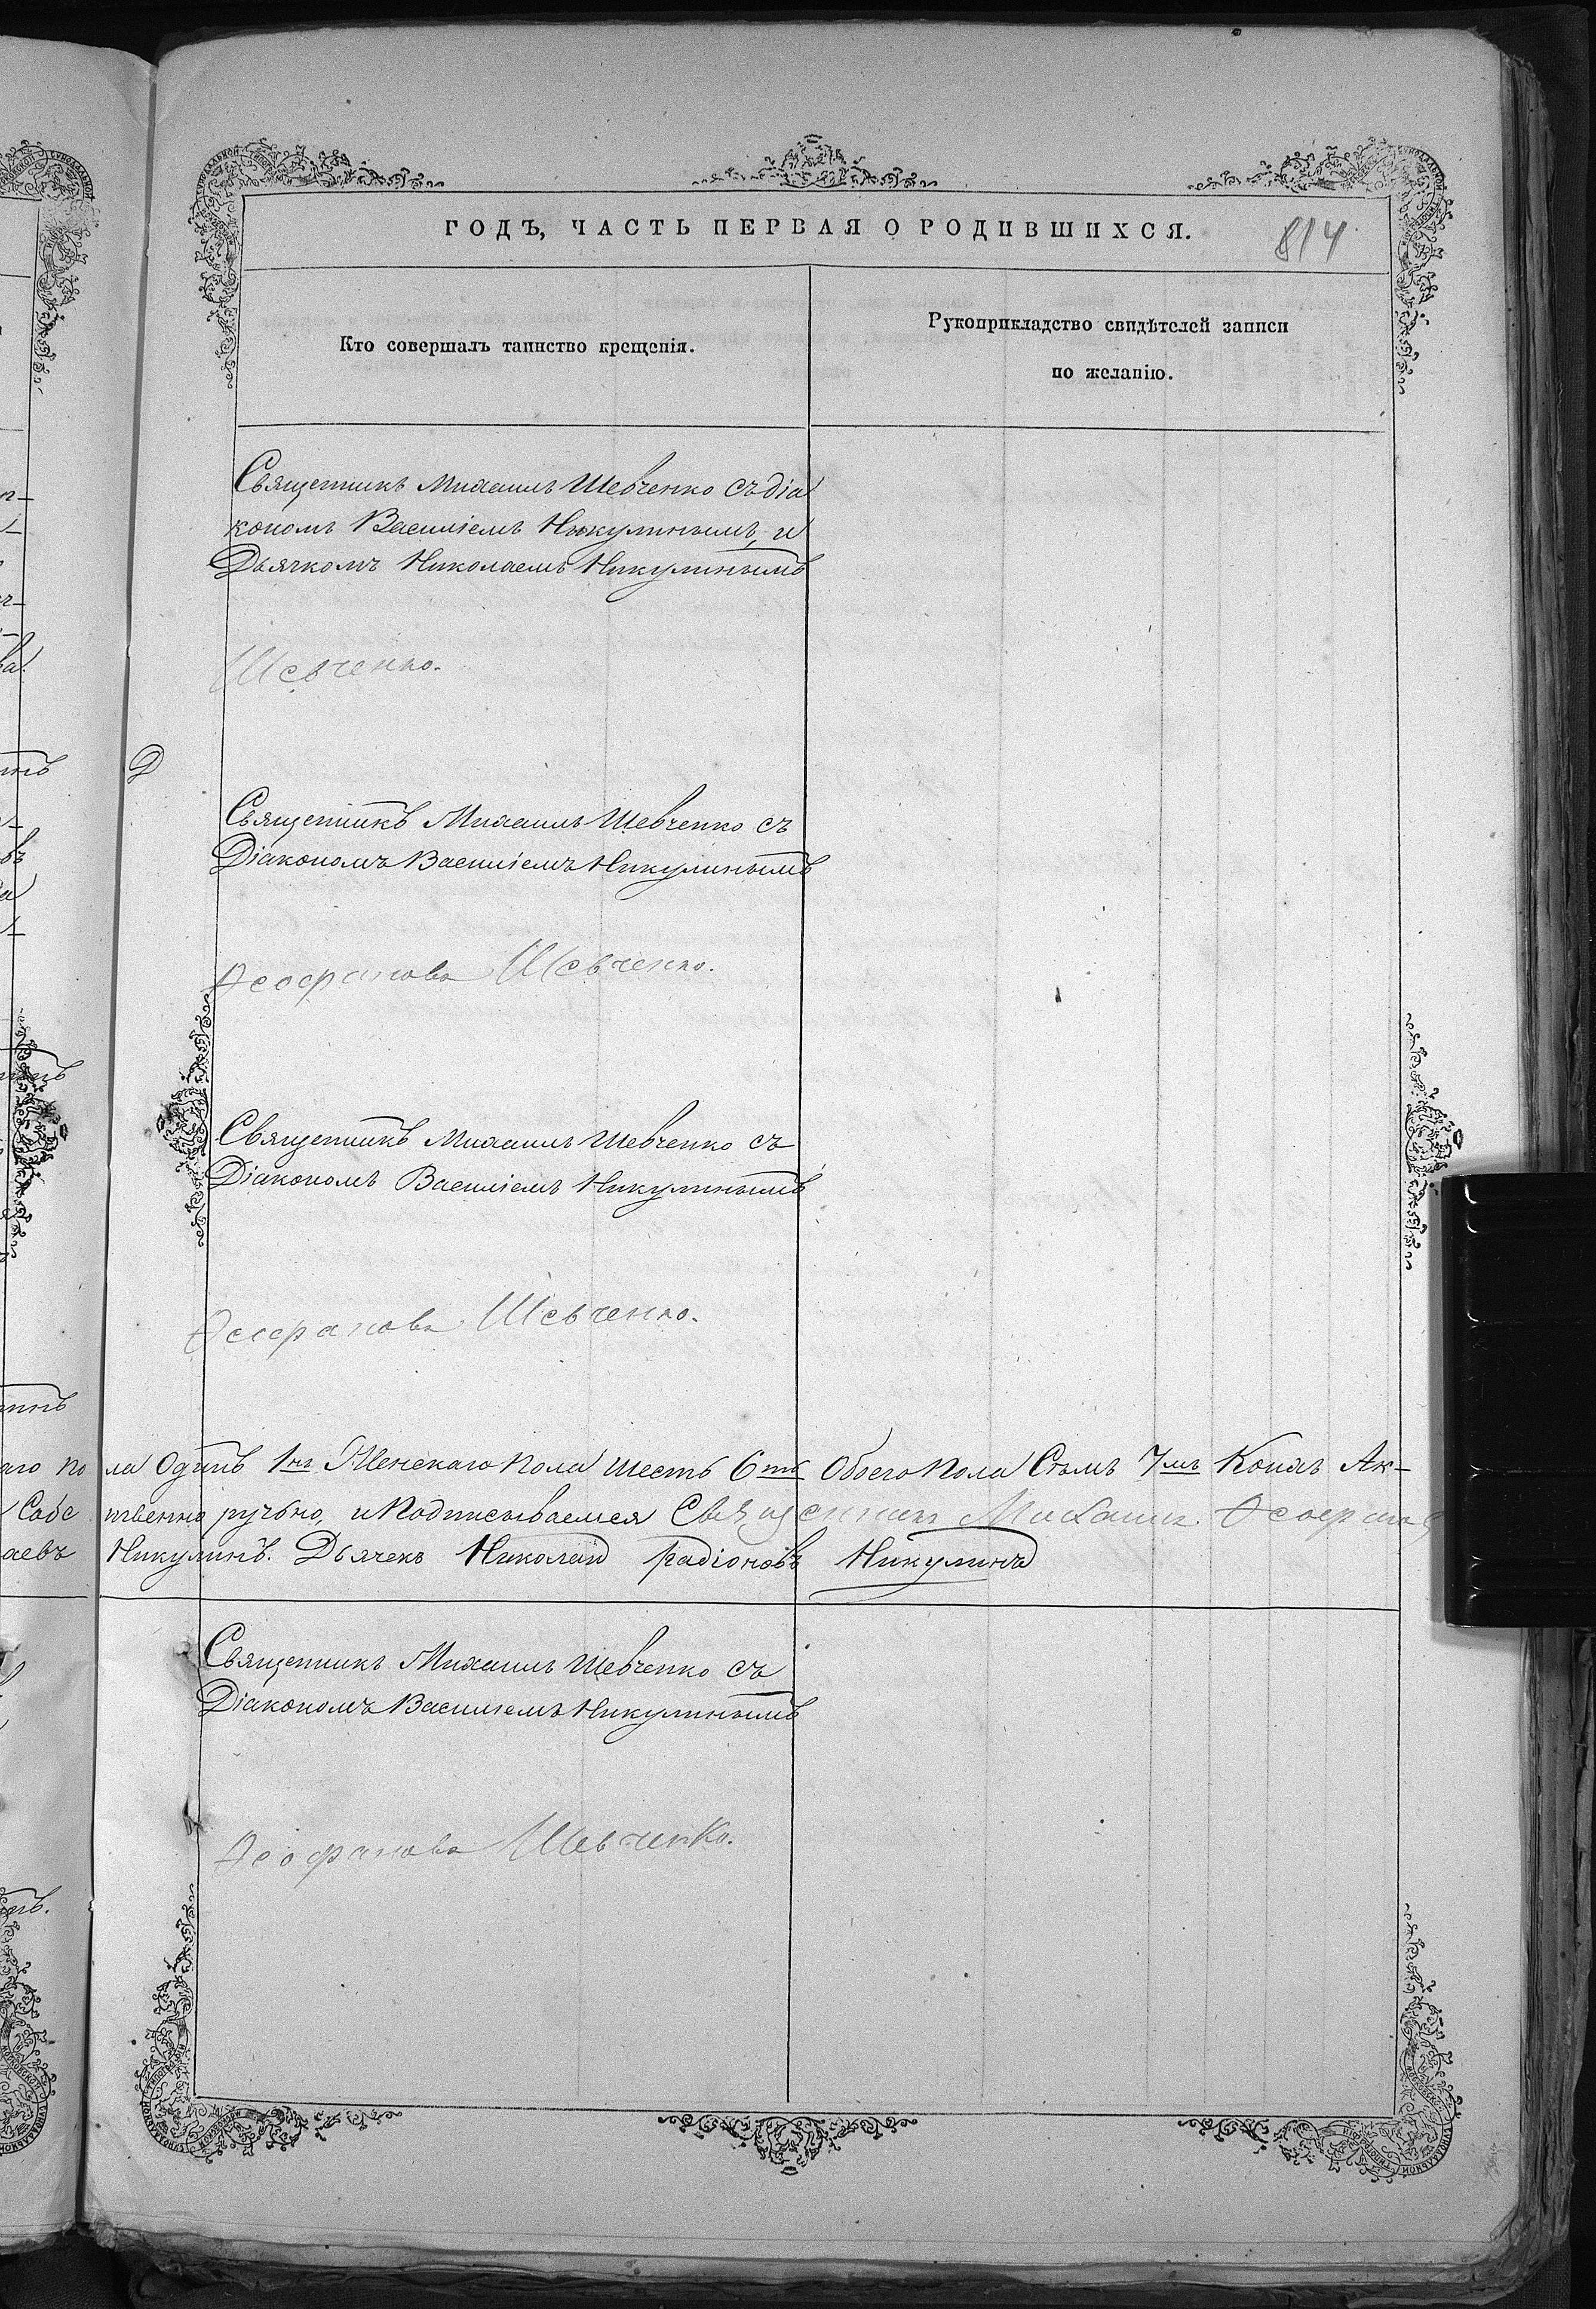 ГОДЪ, ЧАСТЬ ПЕРВАЯ О РОДИВШИХСЯ.
814
Кто совершалъ таинство крещенія.
Рукоприкладство свидѣтелей записи
по желанію.
Священникъ Михаилъ Шевченко съ діа
кономъ Василіемъ Никулинымъ, и
Дьячкомъ Николаемъ Никулинымъ
Шевченко.
Священникъ Михаилъ Шевченко съ
Діакономъ Василіемъ Никулинымъ
Ѳеофановъ Шевченко.
Священникъ Михаилъ Шевченко съ
Діакономъ Василіемъ Никулинымъ
Ѳеофановъ Шевченко.
аго по ла Одинъ 1нъ Женскаго пола шесть 6ть Обоего Пола Семь 7мь Коихъ Ак-
Собс твенно ручьно, и Подписываемся Священникъ Михаилъ Ѳеофанъ
аевъ Никулинъ. Дьячекъ Николай радіоновъ Никулинъ
Священникъ Михаилъ Шевченко съ
Діакономъ Василіемъ Никулинымъ
Ѳеофановъ Шевченко.